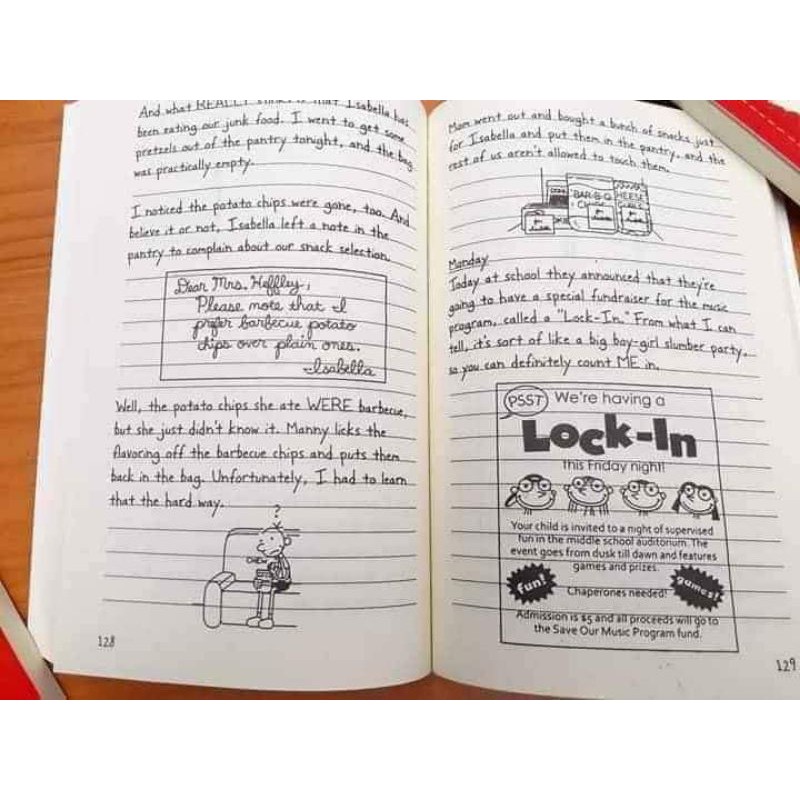 And what REALLY stinks is that Isabella has
been eating our junk food. I went to get some
pretzels out of the pantry tonight, and the bag
was practically empty.
I noticed the potato chips were gone, too. And
believe it or not, Isabella left a note in the
pantry to complain about our snack selection.
Dear Mrs. Heffley,
Please note that I
prefer barbecue potato
chips over plain ones.
-Isabella
Well, the potato chips she ate WERE barbecue,
but she just didn't know it. Manny licks the
flavoring off the barbecue chips and puts them
back in the bag. Unfortunately, I had to learn
that the hard way.
?
128
Mom went out and bought a bunch of snacks just
for Isabella and put them in the pantry, and the
rest of us aren't allowed to touch them.
BAR-B-Q
CHEESE
Monday
Today at school they announced that they're
going to have a special fundraiser for the music
program, called a "Lock-In." From what I can
tell, it's sort of like a big boy-girl slumber party,
so you can definitely count ME in.
PSST We're having a
Lock-In
this Friday night!
Your child is invited to a night of supervised
fun in the middle school auditorium. The
event goes from dusk till dawn and features
games and prizes.
fun!
games!
Chaperones needed!
Admission is $5 and all proceeds will go to
the Save Our Music Program fund.
129